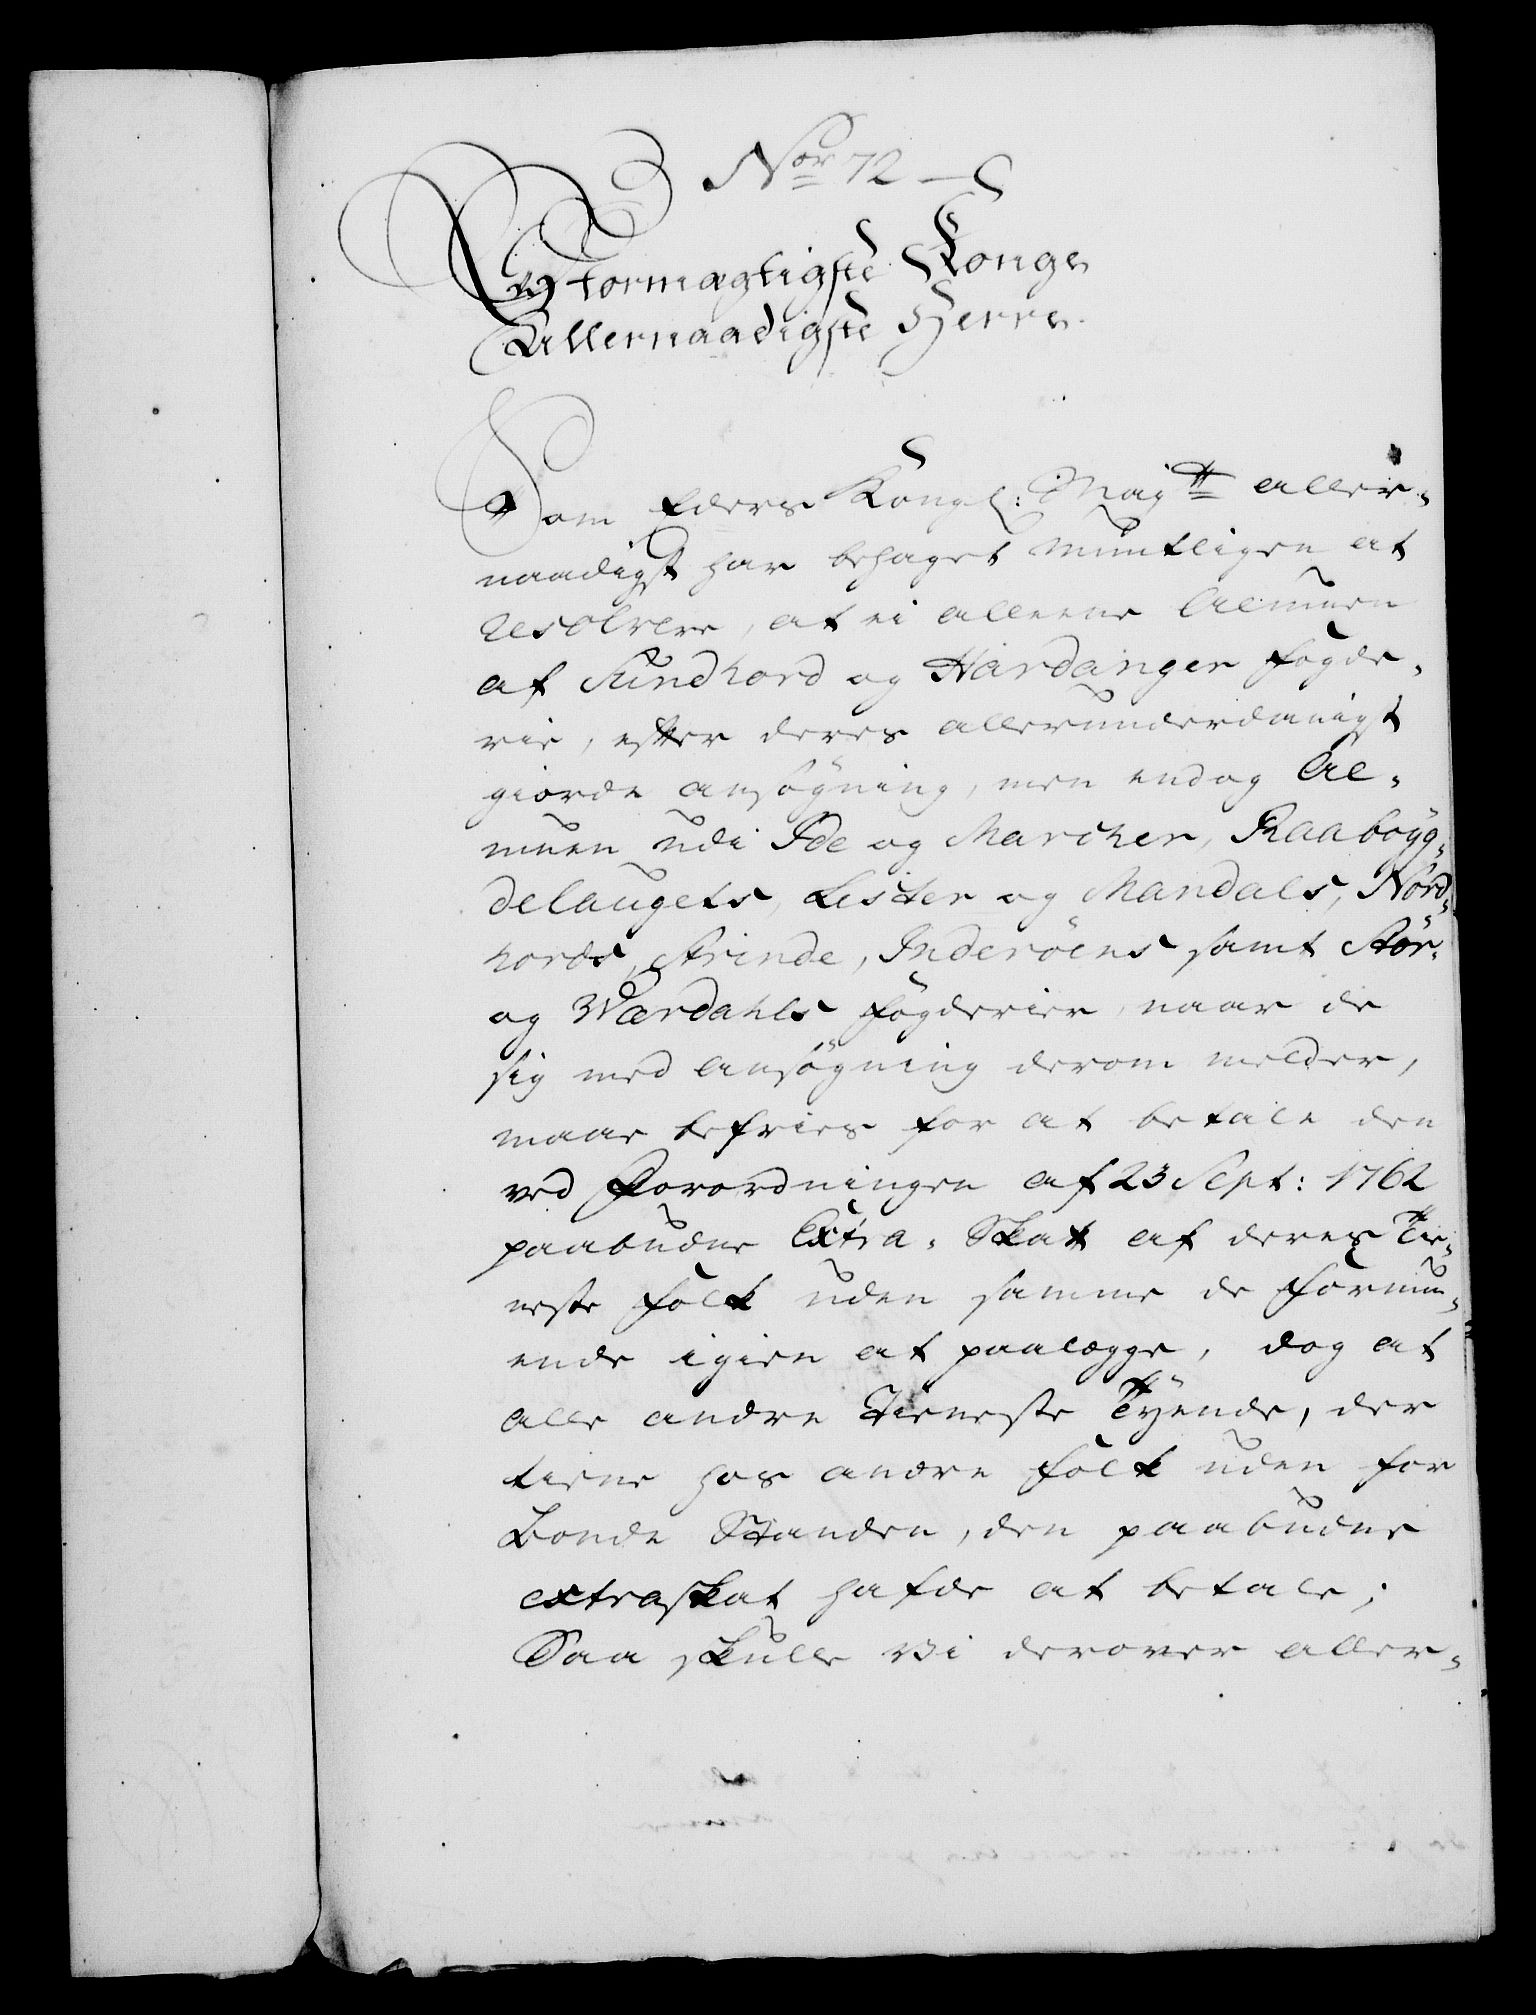 Nor 72
Stormægtigste Konge
Allernaadigste Herre.
Som Eders Kongl: Maytt aller-
naadigst har behaget mundtligen at
resolvere, at ei alleene Almuen
af Sundhord og Hardanger Fogde-
rie, efter deres allerunderdanigst
giorde ansøgning, men endog Al-
muen udi Ide og Marcher, Raabøyg-
delaugets, Lister og Mandals, Nord-
hords, Strinde, Inderøens samt Stør-
og Værdahls Fogderier, naar de
sig med Ansøgning derom melder,
maae befries for at betale den
ved Forordningen af 23 Sept: 1762
paabudne Extra-Skat af deres Tie-
neste Folk uden samme de Formu-
ende igien at paalægge, dog at
alle andre Tieneste Tyende, der
tiene hos andre Folk uden for
Bonde Standen, den paabudne
extraskat hafde at betale;
Saa skulle Vi derover aller-